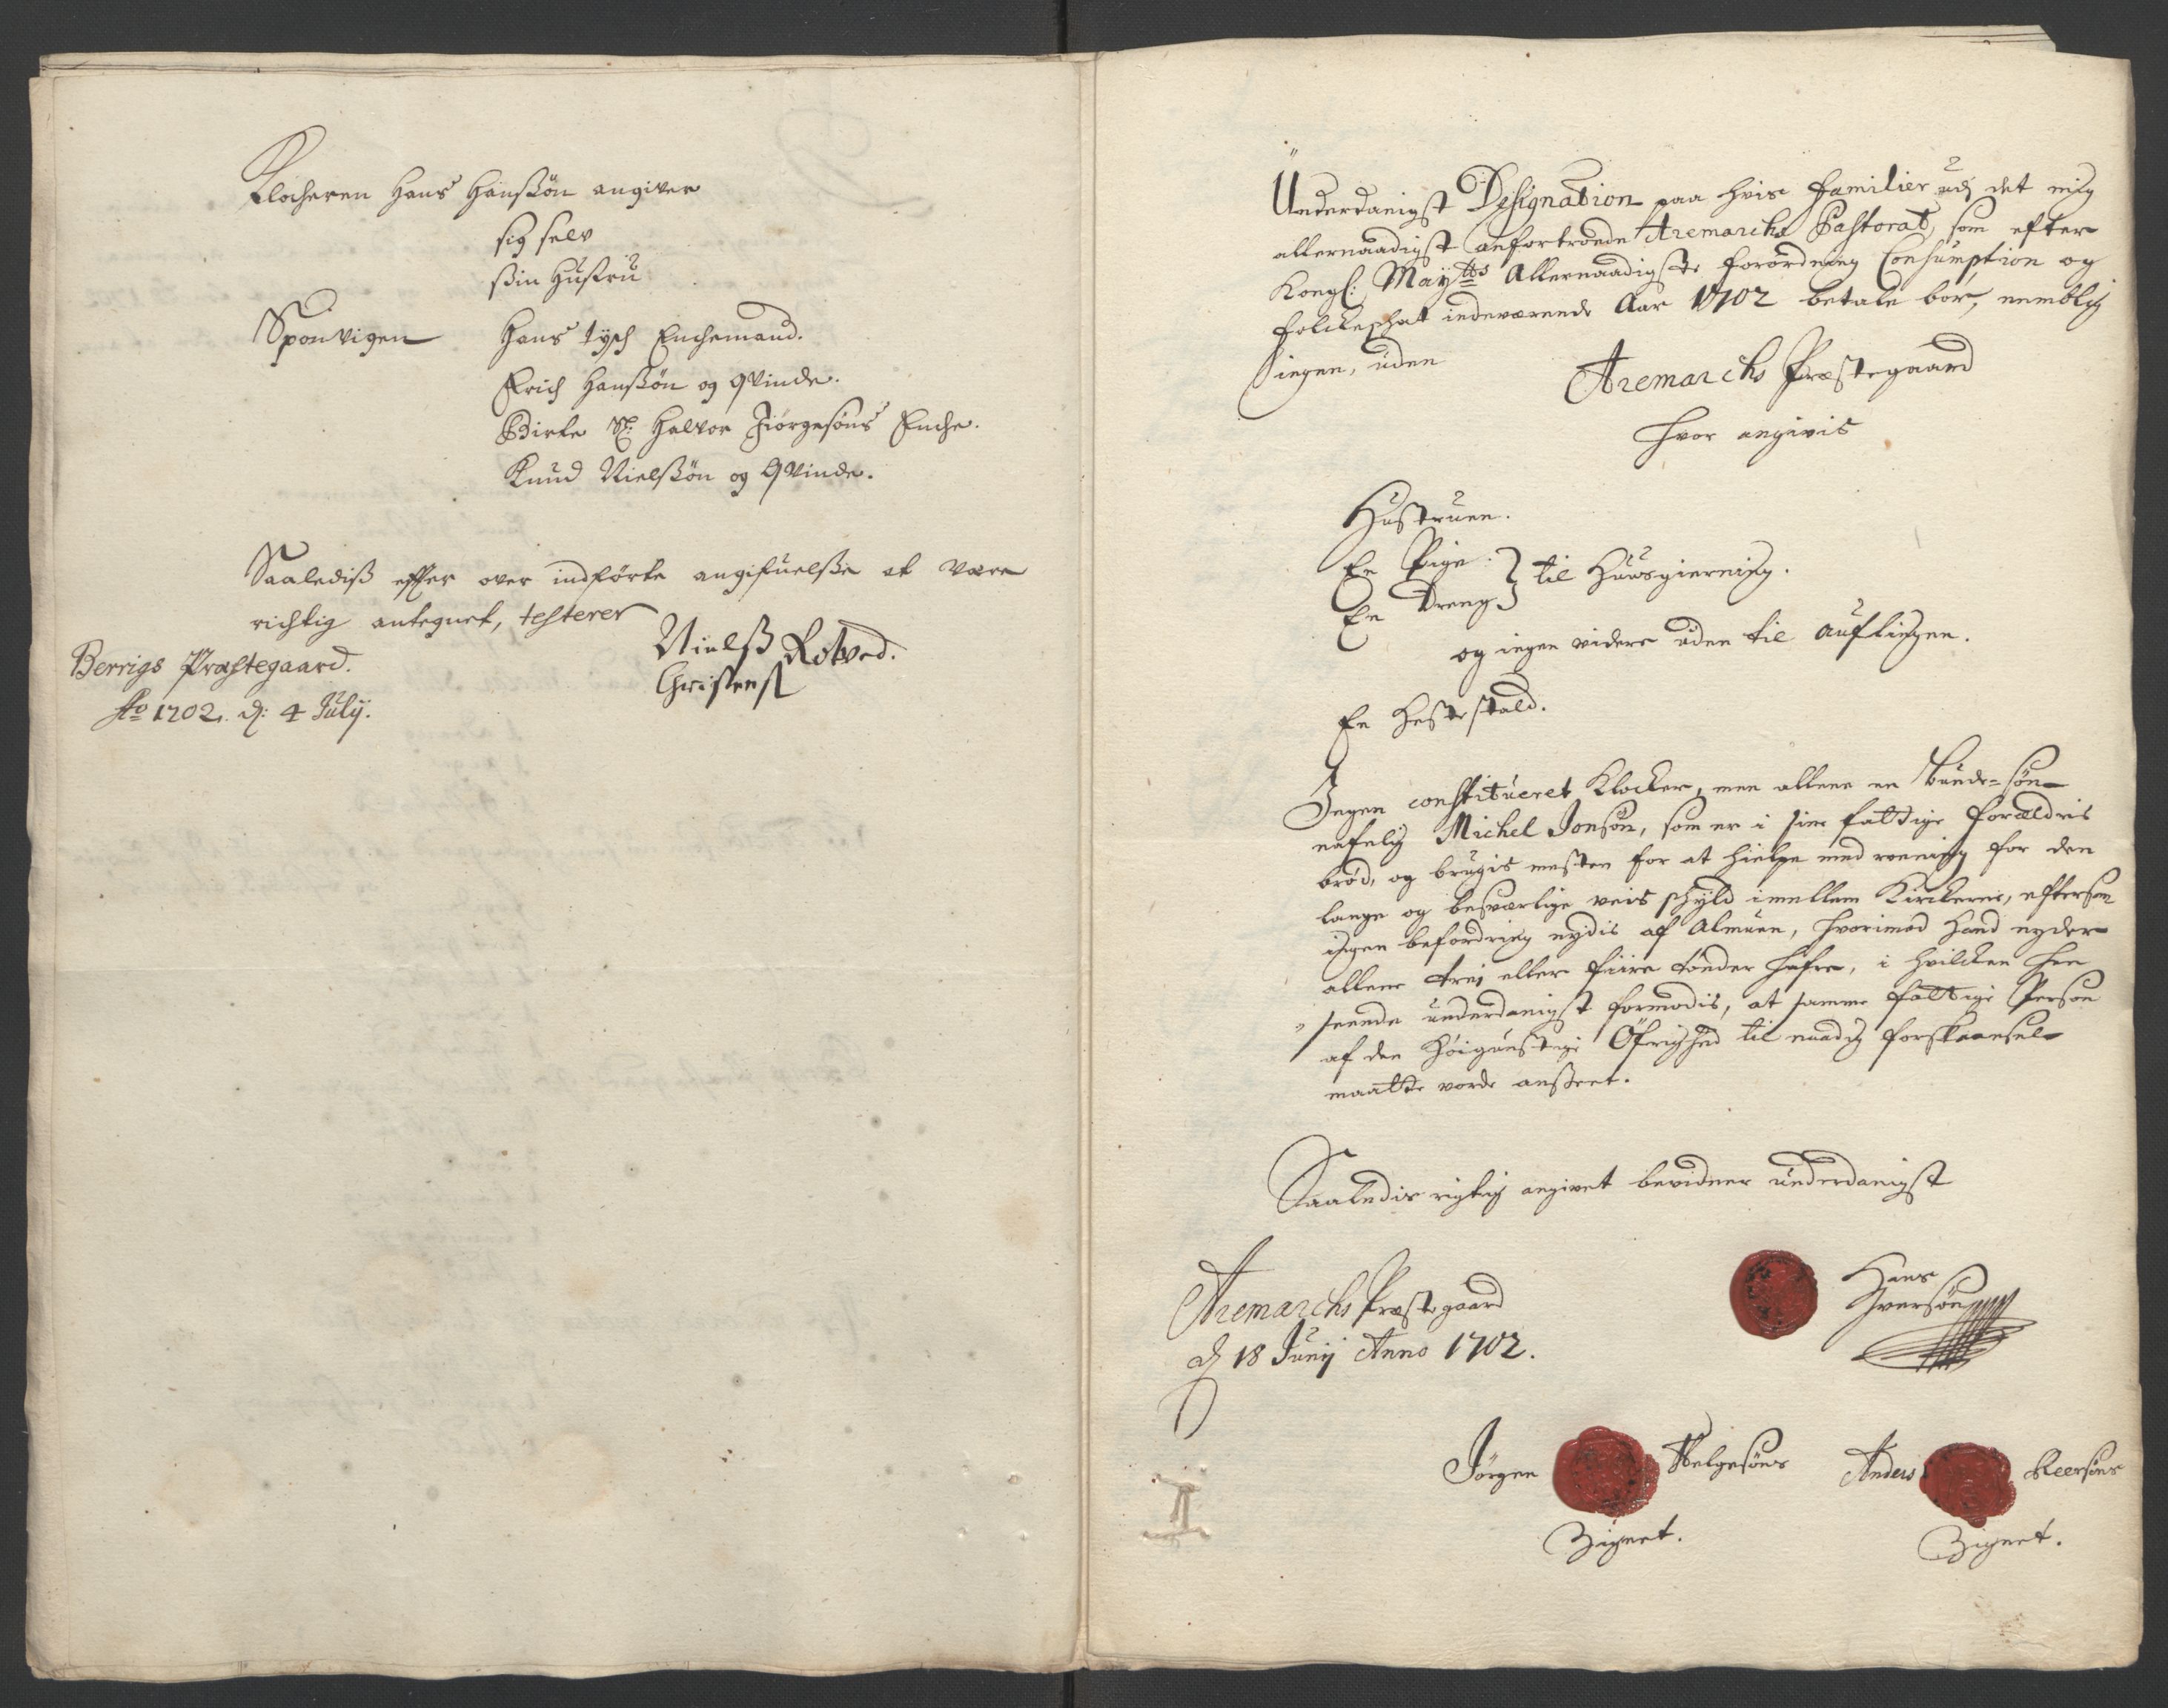 Klocheren Hans Hanßøn angiver
sig selv
ßin Hustru
Sponvigen Hans Tysch Enchemand.
Erich Hanßøn og qvinde.
Birte Sl: Halvor Jiørgesøns Enche.
Knud Nielßøn og Qvinde.
Saalediß effter over indførte angifvelße at være
richtig antegnet, testerer
Nielß Rotved.
Christens
Berrigs Præstegaard.
Ao 1702. d: 4 July.
Underdanigst Designation paa hvis familier udj det mig
allernaadigst anfortroede Aremarchs Pastorat, som efter
Kongl: Maytts Allernaadigste forordning Consumption og
folcheschat indeværende Aar 1702 betale bør, nemblig
Jngen, uden
Aremarchs Præstegaard
hvor angivis
Hustruen.
En Pige
En Dreng til Huusgierning.
og ingen videre uden til auflingen.
En Hestestald.
Jngen constitueret Klocker, men allene en Bunde-søn
nafnlig Michel Jonsøn, som er i sine fattige forældris
brød, og brugis mesten for at hielpe med roening for den
lange og besværlige veis skyld imellem Kirckerne, eftersom
ingen befordring nydis af Almuen, hvorimod hand nyder
allene trei eller fiire tønder hafre, i hvilcken hen
seende underdanigst formodis, at samme fattige Person
af den Høigunstige Øfrighed til naadig forskaansel
maatte vorde anseet.
Saaledis rigtig angivet bevidner underdanigst
Aremarchs Præstegaard
d 18 Junij Anno 1702.
Hans
Iversøn
Jørgen Helgesøns
Zignet.
Anders Reersøns
Zignet.